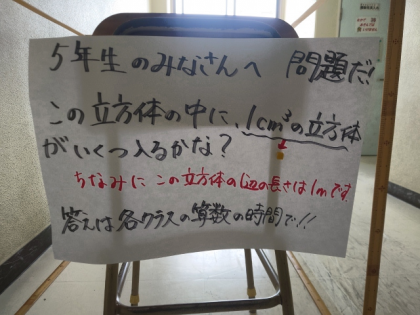 5年生のみなさんへ 問題だ!
この立方体の中に、1cm³の立方体
がいくつ入るかな?
ちなみに この立方体の1辺の長さは1mです。
答えは各クラスの算数の時間で!!